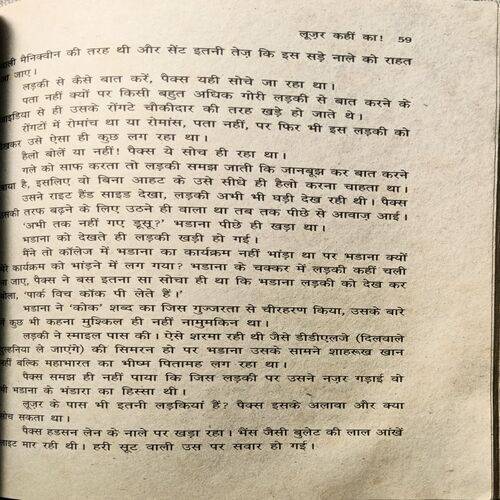 लूज़र कहीं का! 59
वाली मैनिक्वीन की तरह थी और सेंट इतनी तेज़ कि इस सड़े नाले को राहत
जाए।
लड़की से कैसे बात करें, पैक्स यही सोचे जा रहा था।
पता नहीं क्यों पर किसी बहुत अधिक गोरी लड़की से बात करने के
आइडिया से ही उसके रोंगटे चौकीदार की तरह खड़े हो जाते थे।
रोंगटों में रोमांच था या रोमांस, पता नहीं, पर फिर भी इस लड़की को
देखकर उसे ऐसा ही कुछ लग रहा था।
हैलो बोलें या नहीं! पैक्स ये सोच ही रहा था।
गले को साफ करता तो लड़की समझ जाती कि जानबूझ कर बात करने
आया है, इसलिए वो बिना आहट के उसे सीधे ही हैलो करना चाहता था।
उसने राइट हैंड साइड देखा, लड़की अभी भी घड़ी देख रही थी। पैक्स
उसकी तरफ बढ़ने के लिए उठने ही वाला था तब तक पीछे से आवाज़ आई।
‘अभी तक नहीं गए डूसू?’ भडाना पीछे ही खड़ा था।
भडाना को देखते ही लड़की खड़ी हो गई।
मैंने तो कॉलेज में भडाना का कार्यक्रम नहीं भांड़ा था पर भडाना क्यों
मेरे कार्यक्रम को भांड़ने में लग गया? भडाना के चक्कर में लड़की कहीं चली
न जाए, पैक्स ने बस इतना सा सोचा ही था कि भडाना लड़की को देख कर
बोला, ‘पार्क विच कोंक पी लेते हैं।’
भडाना ने ‘कोक’ शब्द का जिस गुज्जरता से चीरहरण किया, उसके बारे
में कुछ भी कहना मुश्किल ही नहीं नामुमकिन था।
लड़की ने स्माइल पास की। ऐसे शरमा रही थी जैसे डीडीएलजे (दिलवाले
दुल्हनिया ले जाएंगे) की सिमरन हो पर भडाना उसके सामने शाहरूख खान
नहीं बल्कि महाभारत का भीष्म पितामह लग रहा था।
पैक्स समझ ही नहीं पाया कि जिस लड़की पर उसने नज़र गड़ाई वो
भी भडाना के भंडारा का हिस्सा थी।
लूज़र के पास भी इतनी लड़कियां हैं? पैक्स इसके अलावा और क्या
सोच सकता था।
पैक्स हडसन लेन के नाले पर खड़ा रहा। भैंस जैसी बुलेट की लाल आंखें
लाइट मार रही थी। हरी सूट वाली उस पर सवार हो गई।